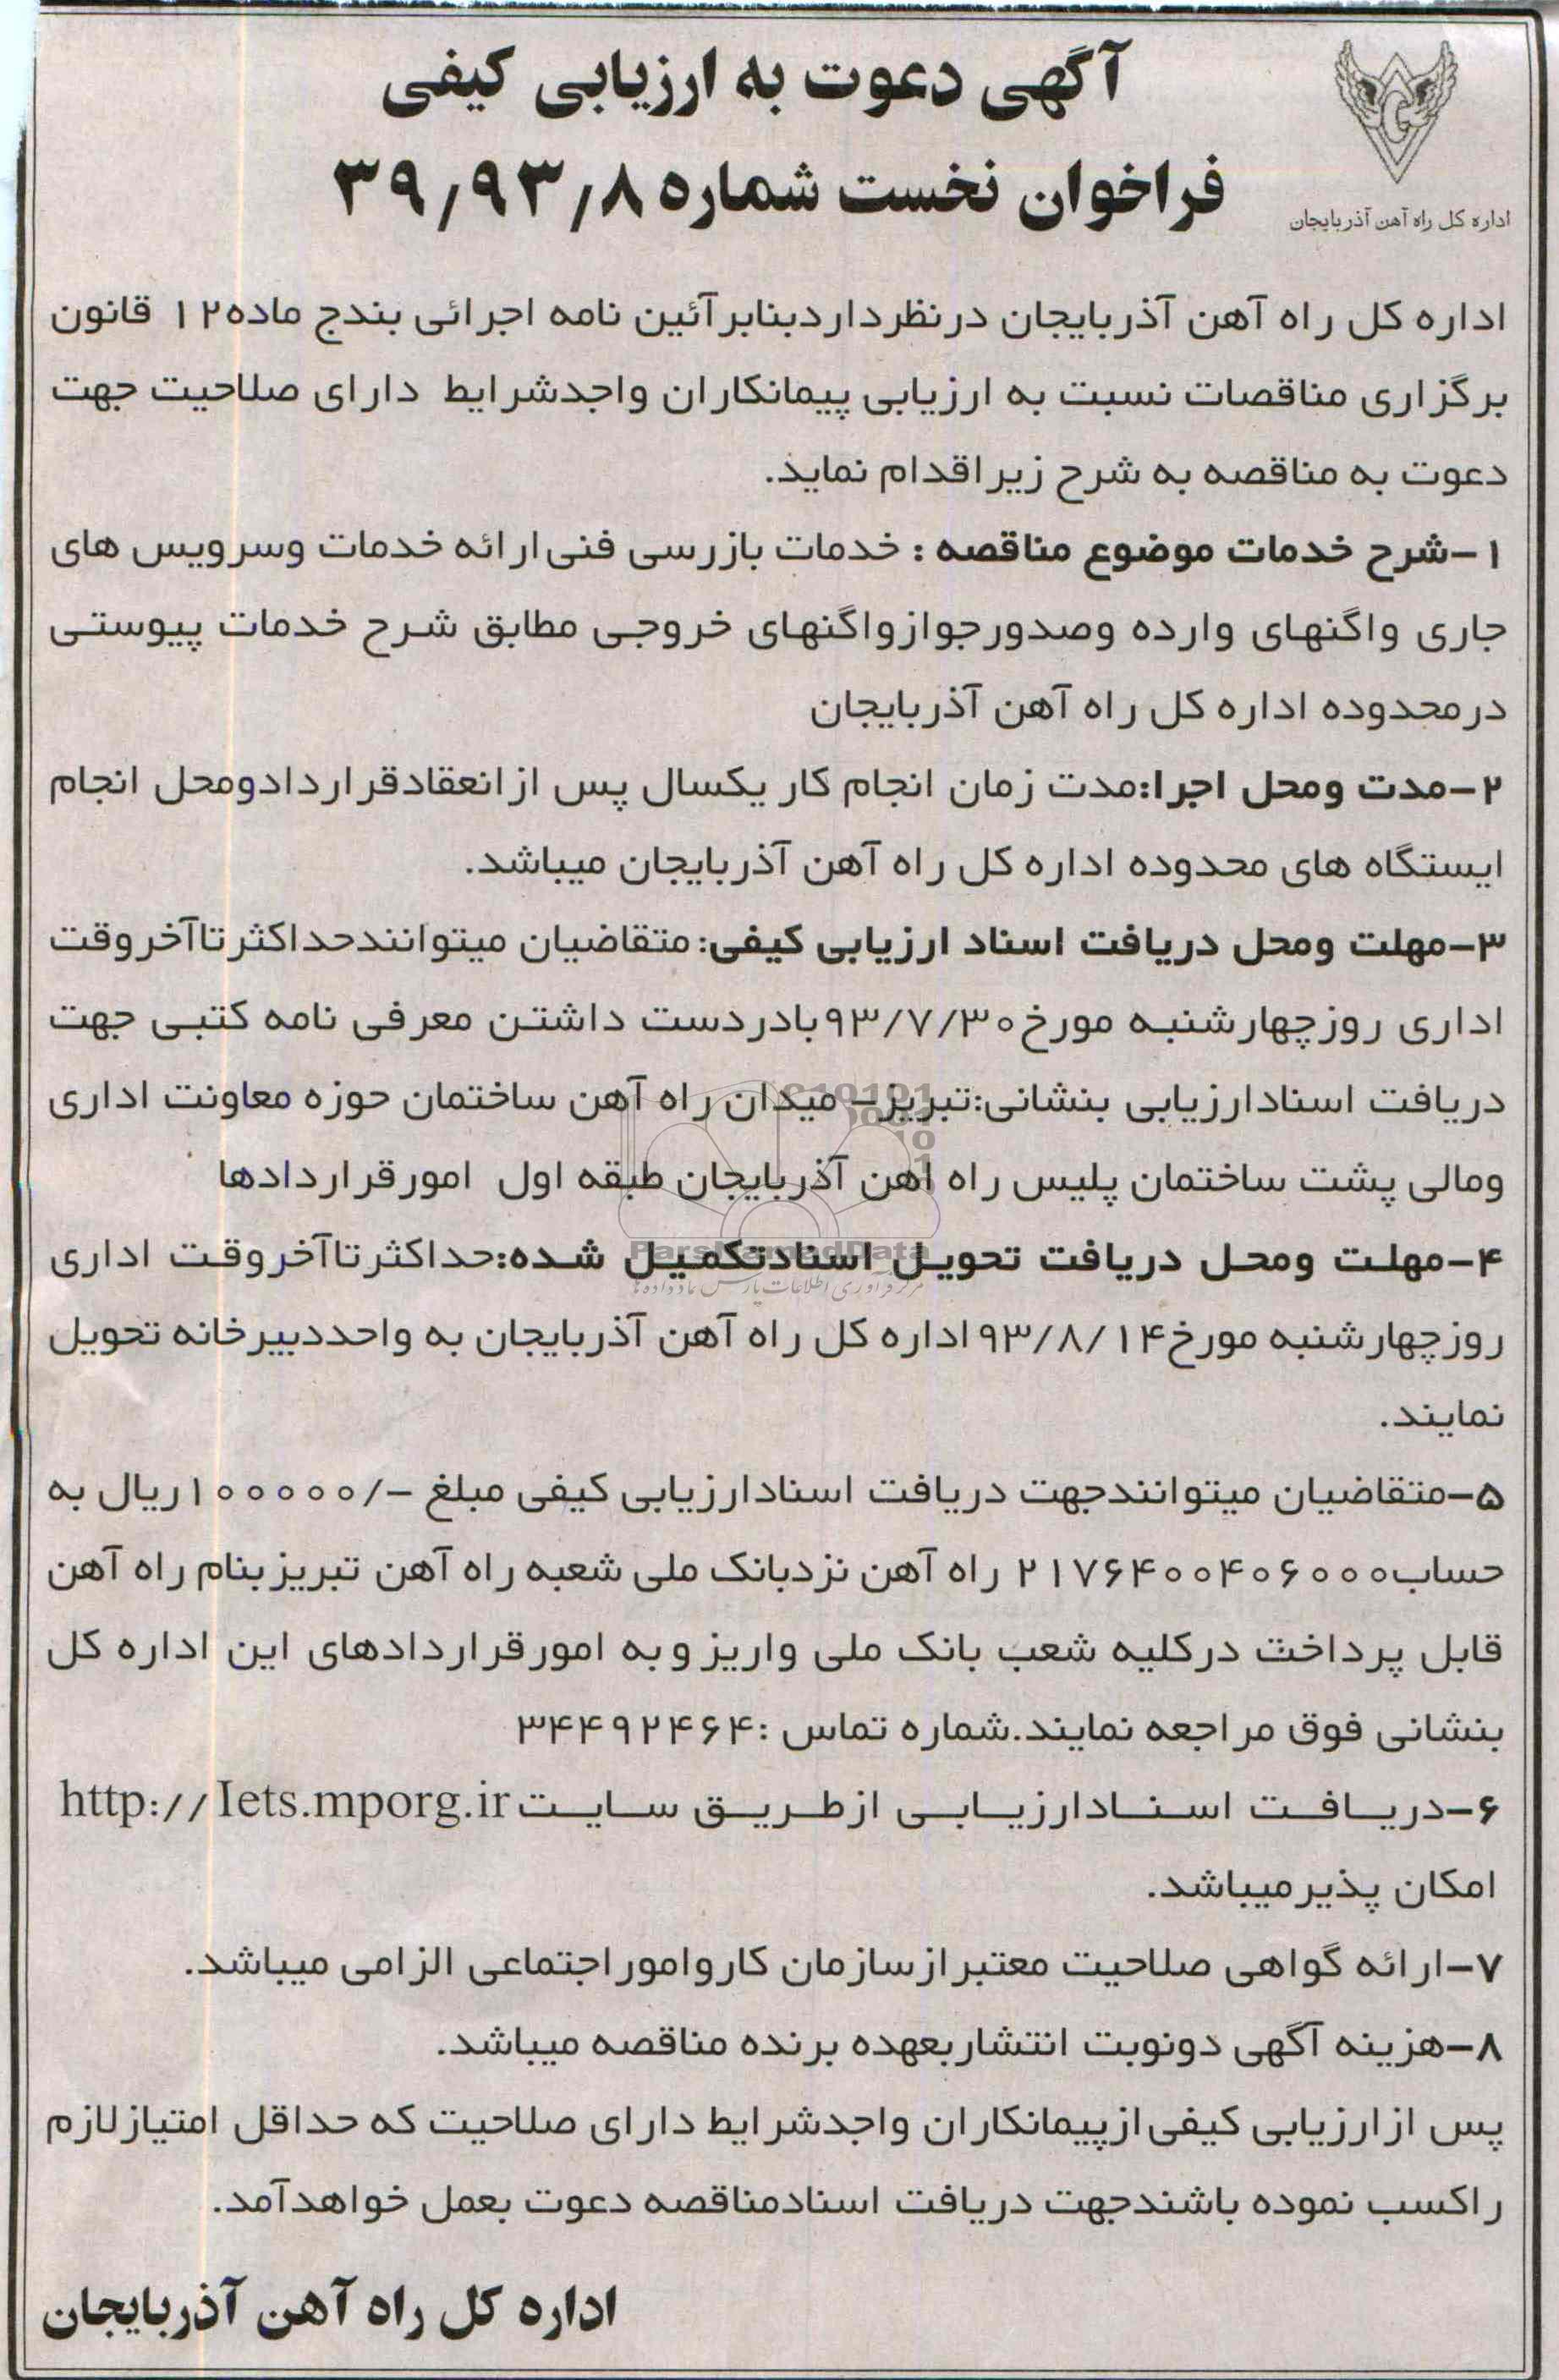 آگهی دعوت به ارزیابی کیفی
فراخوان نخست شماره ۳۹٫۹۳٫۸
اداره کل راه آهن آذربایجان
اداره کل راه آهن آذربایجان درنظرداردبنابرآئین نامه اجرائی بندج ماده۱۲ قانون
برگزاری مناقصات نسبت به ارزیابی پیمانکاران واجدشرایط دارای صلاحیت جهت
دعوت به مناقصه به شرح زیراقدام نماید.
۱-شرح خدمات موضوع مناقصه : خدمات بازرسی فنی‌ارائه خدمات وسرویس های
جاری واگنهای وارده وصدورجوازواگنهای خروجی مطابق شرح خدمات پیوستی
درمحدوده اداره کل راه آهن آذربایجان
۲-مدت ومحل اجرا:مدت زمان انجام کار یکسال پس ازانعقادقراردادومحل انجام
ایستگاه های محدوده اداره کل راه آهن آذربایجان میباشد.
۳-مهلت ومحل دریافت اسناد ارزیابی کیفی: متقاضیان میتوانندحداکثرتاآخروقت
اداری روزچهارشنبه مورخ۹۳/۷/۳۰بادردست داشتن معرفی نامه کتبی جهت
دریافت اسنادارزیابی بنشانی:تبریز- میدان راه آهن ساختمان حوزه معاونت اداری
ومالی پشت ساختمان پلیس راه آهن آذربایجان طبقه اول امورقراردادها
ParsNamadData
مرکز فرآوری اطلاعات پارس نماد داده ها
۴-مهلت ومحل دریافت تحویل اسنادتکمیل شده:حداکثرتاآخروقت اداری
روزچهارشنبه مورخ۹۳/۸/۱۴اداره کل راه آهن آذربایجان به واحددبیرخانه تحویل
نمایند.
۵-متقاضیان میتوانندجهت دریافت اسنادارزیابی کیفی مبلغ -/۱۰۰۰۰۰ریال به
حساب۲۱۷۶۴۰۰۴۰۶۰۰۰ راه آهن نزدبانک ملی شعبه راه آهن تبریزبنام راه آهن
قابل پرداخت درکلیه شعب بانک ملی واریز وبه امورقراردادهای این اداره کل
بنشانی فوق مراجعه نمایند.شماره تماس :۳۴۴۹۲۴۶۴
۶-دریافت اسنادارزیابی ازطریق سایت http://Iets.mporg.ir
امکان پذیرمیباشد.
۷-ارائه گواهی صلاحیت معتبرازسازمان کارواموراجتماعی الزامی میباشد.
۸-هزینه آگهی دونوبت انتشاربعهده برنده مناقصه میباشد.
پس ازارزیابی کیفی‌ازپیمانکاران واجدشرایط دارای صلاحیت که حداقل امتیازلازم
راکسب نموده باشندجهت دریافت اسنادمناقصه دعوت بعمل خواهدآمد.
اداره کل راه آهن آذربایجان